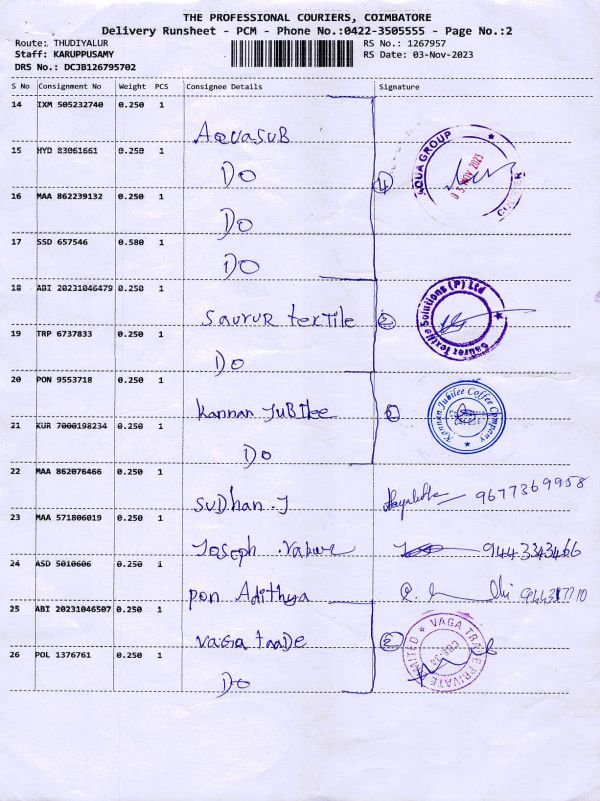 THE PROFESSIONAL COURIERS, COIMBATORE
Delivery Runsheet - PCM - Phone No.:0422-3505555 - Page No.:2
Route: THUDIYALUR RS No.: 1267957
Staff: KARUPPUSAMY RS Date: 03-Nov-2023
DRS No.: DCJB126795702
S No Consignment No Weight PCS Consignee Details Signature
14 IXM 505232740 0.250 1
AQUASUB
AQUA GROUP
03 NOV 2023
15 HYD 83061661 0.250 1
DO
4
16 MAA 862239132 0.250 1
DO
17 SSD 657546 0.580 1
DO
18 ABI 20231046479 0.250 1
Saurer Textile Solutions (P) Ltd
saurur textile 2
19 TRP 6737833 0.250 1
DO
20 PON 9553718 0.250 1
Kannan Jubilee Coffee Company
Kannan JuBilee
21 KUR 7000198234 0.250 1
DO
22 MAA 862076466 0.250 1
Sudhan.J 9677369958
23 MAA 571806019 0.250 1
Joseph 9443343466
24 ASD 5010606 0.250 1
pon Adithya
25 ABI 20231046507 0.250 1
VAGA TRADE PRIVATE LIMITED
CBE-34
vaGa traDe 2
26 POL 1376761 0.250 1
DO